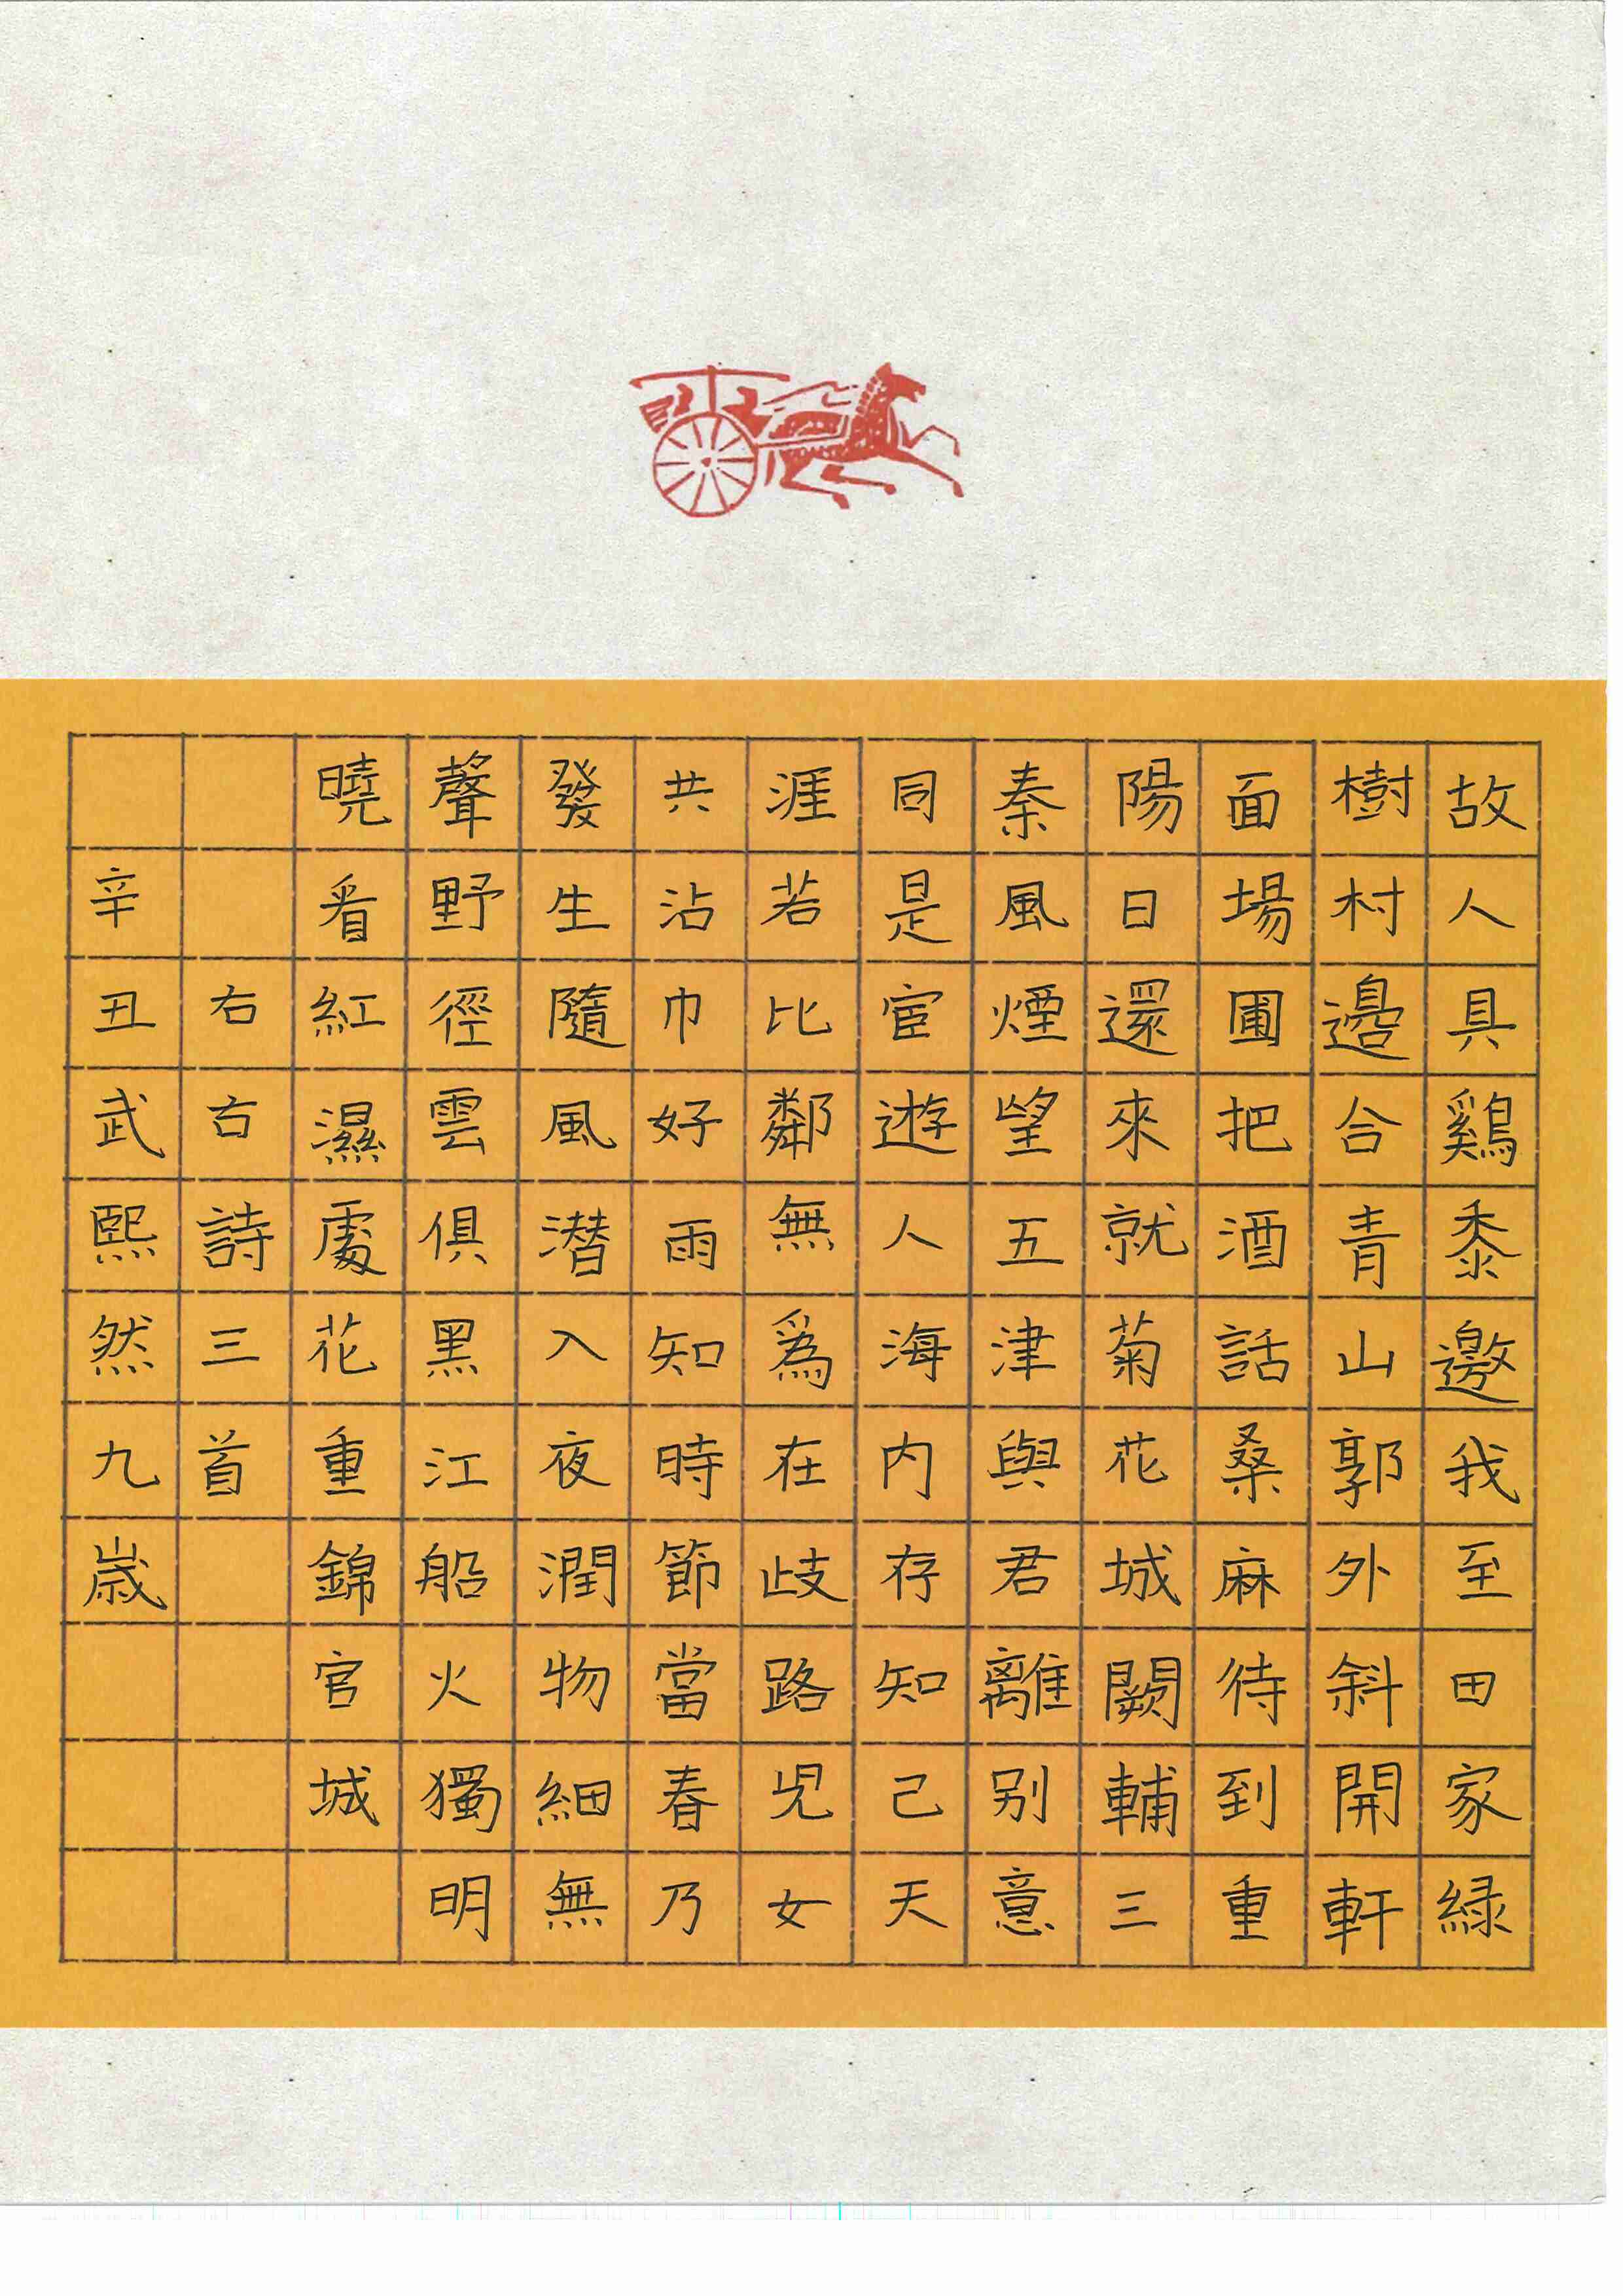 故人具鷄黍邀我至田家緑
樹村邊合青山郭外斜開軒
面場圃把酒話桑麻待到重
陽日還來就菊花城闕輔三
秦風煙望五津與君離别意
同是宦遊人海内存知己天
涯若比鄰無爲在歧路児女
共沾巾好雨知時節當春乃
發生隨風潜入夜潤物細無
聲野徑雲俱黑江船火獨明
曉看紅濕處花重錦官城
右古詩三首
辛丑武熙然九歲